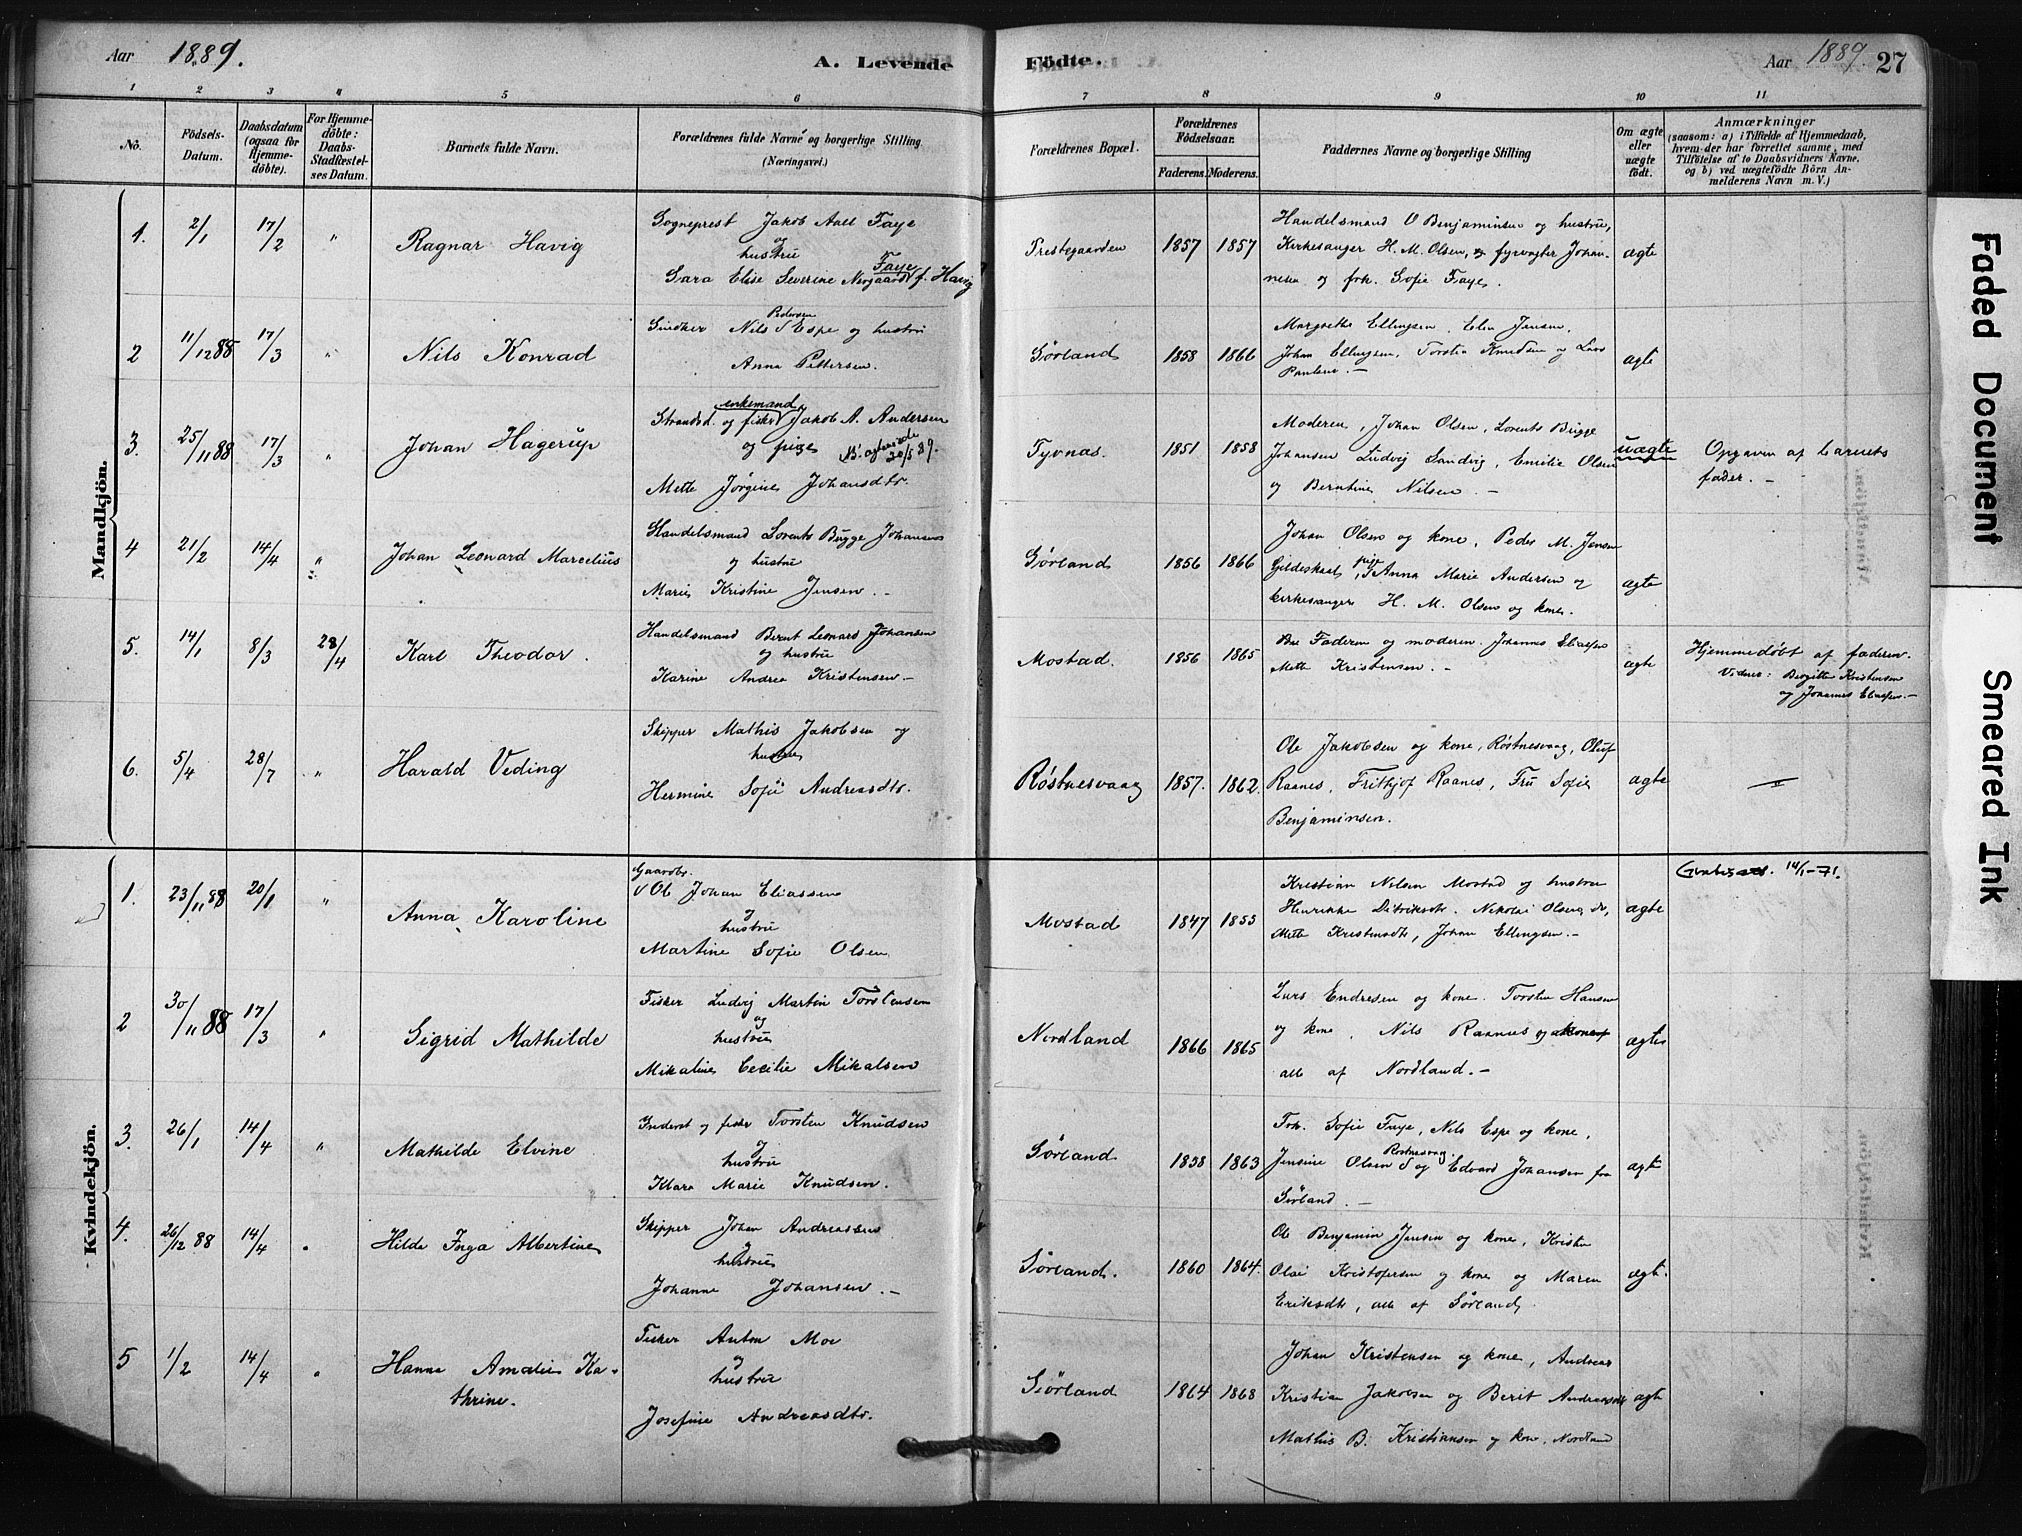 Aar 1889.
A. Levende Födte.
Aar 1889. 27
1 2 3 4 5 6 7 8 9 10 11
No.
Födsels-Datum.
Daabsdatum (ogsaa for Hjemmedöbte).
For Hjemmedöbte: Daabs-Stadfæstelses Datum.
Barnets fulde Navn.
Forældrenes fulde Navne og borgerlige Stilling (Næringsvei).
Forældrenes Bopæl.
Forældrenes Födselsaar.
Faderens. Moderens.
Faddernes Navne og borgerlige Stilling
Om ægte eller uægte födt.
Anmærkninger
(saasom: a) i Tilfælde af Hjemmedaab, hvem der har forrettet samme, med Tilföielse af to Daabsvidners Navne, og b) ved uægtefödte Börn Anmelderens Navn m. V.)
Mandkjön.
1. 2/1 17/2 "
Ragnar Havig
Sogneprest Jakob Aall Faye
og
hustru
Faye
Sara Elise Severine Norgaard f. Havig
Prestegaarden 1857 1857
Handelsmand O Benjaminsen og hustru,
Kirkesanger H. M. Olsen, og fyrvogter Johan-
nesen og frk. Sofie Faye.
ægte
2 11/12 88 17/3 "
Nils Konrad
Pedersen
Snidker Nils Espe og hustru
Anna Pettersen.
Sørland 1858 1866
Margrethe Ellingsen, Elen Jensen,
Johan Ellingsen, Torsten Knudsen og Lars
Paulsen. –
ægte
3. 25/11 88 17/3 "
Johan Hagerup
enkemand
Strands. og fisker Jakob A. Andersen
og pige
NB. ægteviede 20/5 89.
Mette Jørgine Johansdtr.
Tyvnæs. 1851 1858
Moderen, Johan Olsen, Lorents Bugge
Johansen Ludvig Sandvig, Emilie Olsen
og Berntine Nilsen. –
uægte
Opgaven af barnets
fader. –
4 21/2 14/4 "
Johan Leonard Marcelius
Handelsmand Lorents Bugge Johansen
og hustru
Marie Kristine Jensen. –
Sørland 1856 1866
Johan Olsen og kone, Peder M. Jensen
Gildeskaal, pige Anna Marie Andersen og
kirkesanger H. M. Olsen og kone.
ægte
5. 14/1 8/3 28/4
Karl Theodor.
Handelsmand Bernt Leonard Johansen
og hustru
Karine Andrea Kristensen. –
Mostad. 1856 1865
Faderen og moderen. Johannes Eliassen
Mette Kristensen. –
ægte
Hjemmedøbt af faderen.
Vidner: Birgitte Kristensen
og Johannes Eliassen. –
6. 5/4 28/7 "
Harald Veding
Skipper Mathis Jakobsen og
hustru
Hermine Sofie Andreasdtr.
Røstnesvaag 1857. 1862.
Ole Jakobsen og kone, Røstnesvaag, Oluf
Raanes, Frithjof Raanes, Fru Sofie
Benjaminsen.
ægte
"
Kvindekjön.
1. 23/11 88 20/1 "
Anna Karoline
Gaardbr.
Ole Johan Eliassen
og
hustru
Martine Sofie Olsen
Mostad 1847 1853
Kristian Nilsen Mostad og hustru
Henrikke Ditriksdtr. Nikolai Olsen, do,
Mette Kristensdtr, Johan Ellingsen. –
ægte
14/1-71.
2 30/11 88 17/3 "
Sigrid Mathilde
Fisker Ludvig Martin Torstensen
og
hustru
Mikaline Cecilie Mikalsen
Nordland 1866 1865
Lars Endresen og kone. Torsten Hansen
og kone, Nils Raanes og kone
alle af Nordland. –
ægte
3. 26/1 14/4 "
Mathilde Elvine
Inderst og fisker Torsten Knudsen
og
hustru
Klara Marie Knudsen.
Sørland 1858 1863
Frk. Sofie Faye, Nils Espe og kone,
Røstnesvaag
Jensine Olsen og Edvard Johansen fra
Sørland. –
ægte
4. 26/12 88 14/4 "
Hilda Inga Albertine
Skipper Johan Andreassen
og
hustru
Johanne Johansen. –
Sørland. 1860 1864.
Ole Benjamin Jensen og kone, Kristen
Olai Kristofersen og kone og Maren
Eriksdtr, alle af Sørland,
ægt.
5 1/2 14/4 "
Hanna Amalie Ka-
thrine.
Fisker Anton Moe
og
hustru
Josefine Andreasdtr.
Sørland 1864 1868
Johan Kristensen og kone, Andreas
Kristian Jakobsen og Berit Andreasdtr
Mathis B. Kristiansen og kone, Nordland
ægte
Faded Document
Smeared Ink